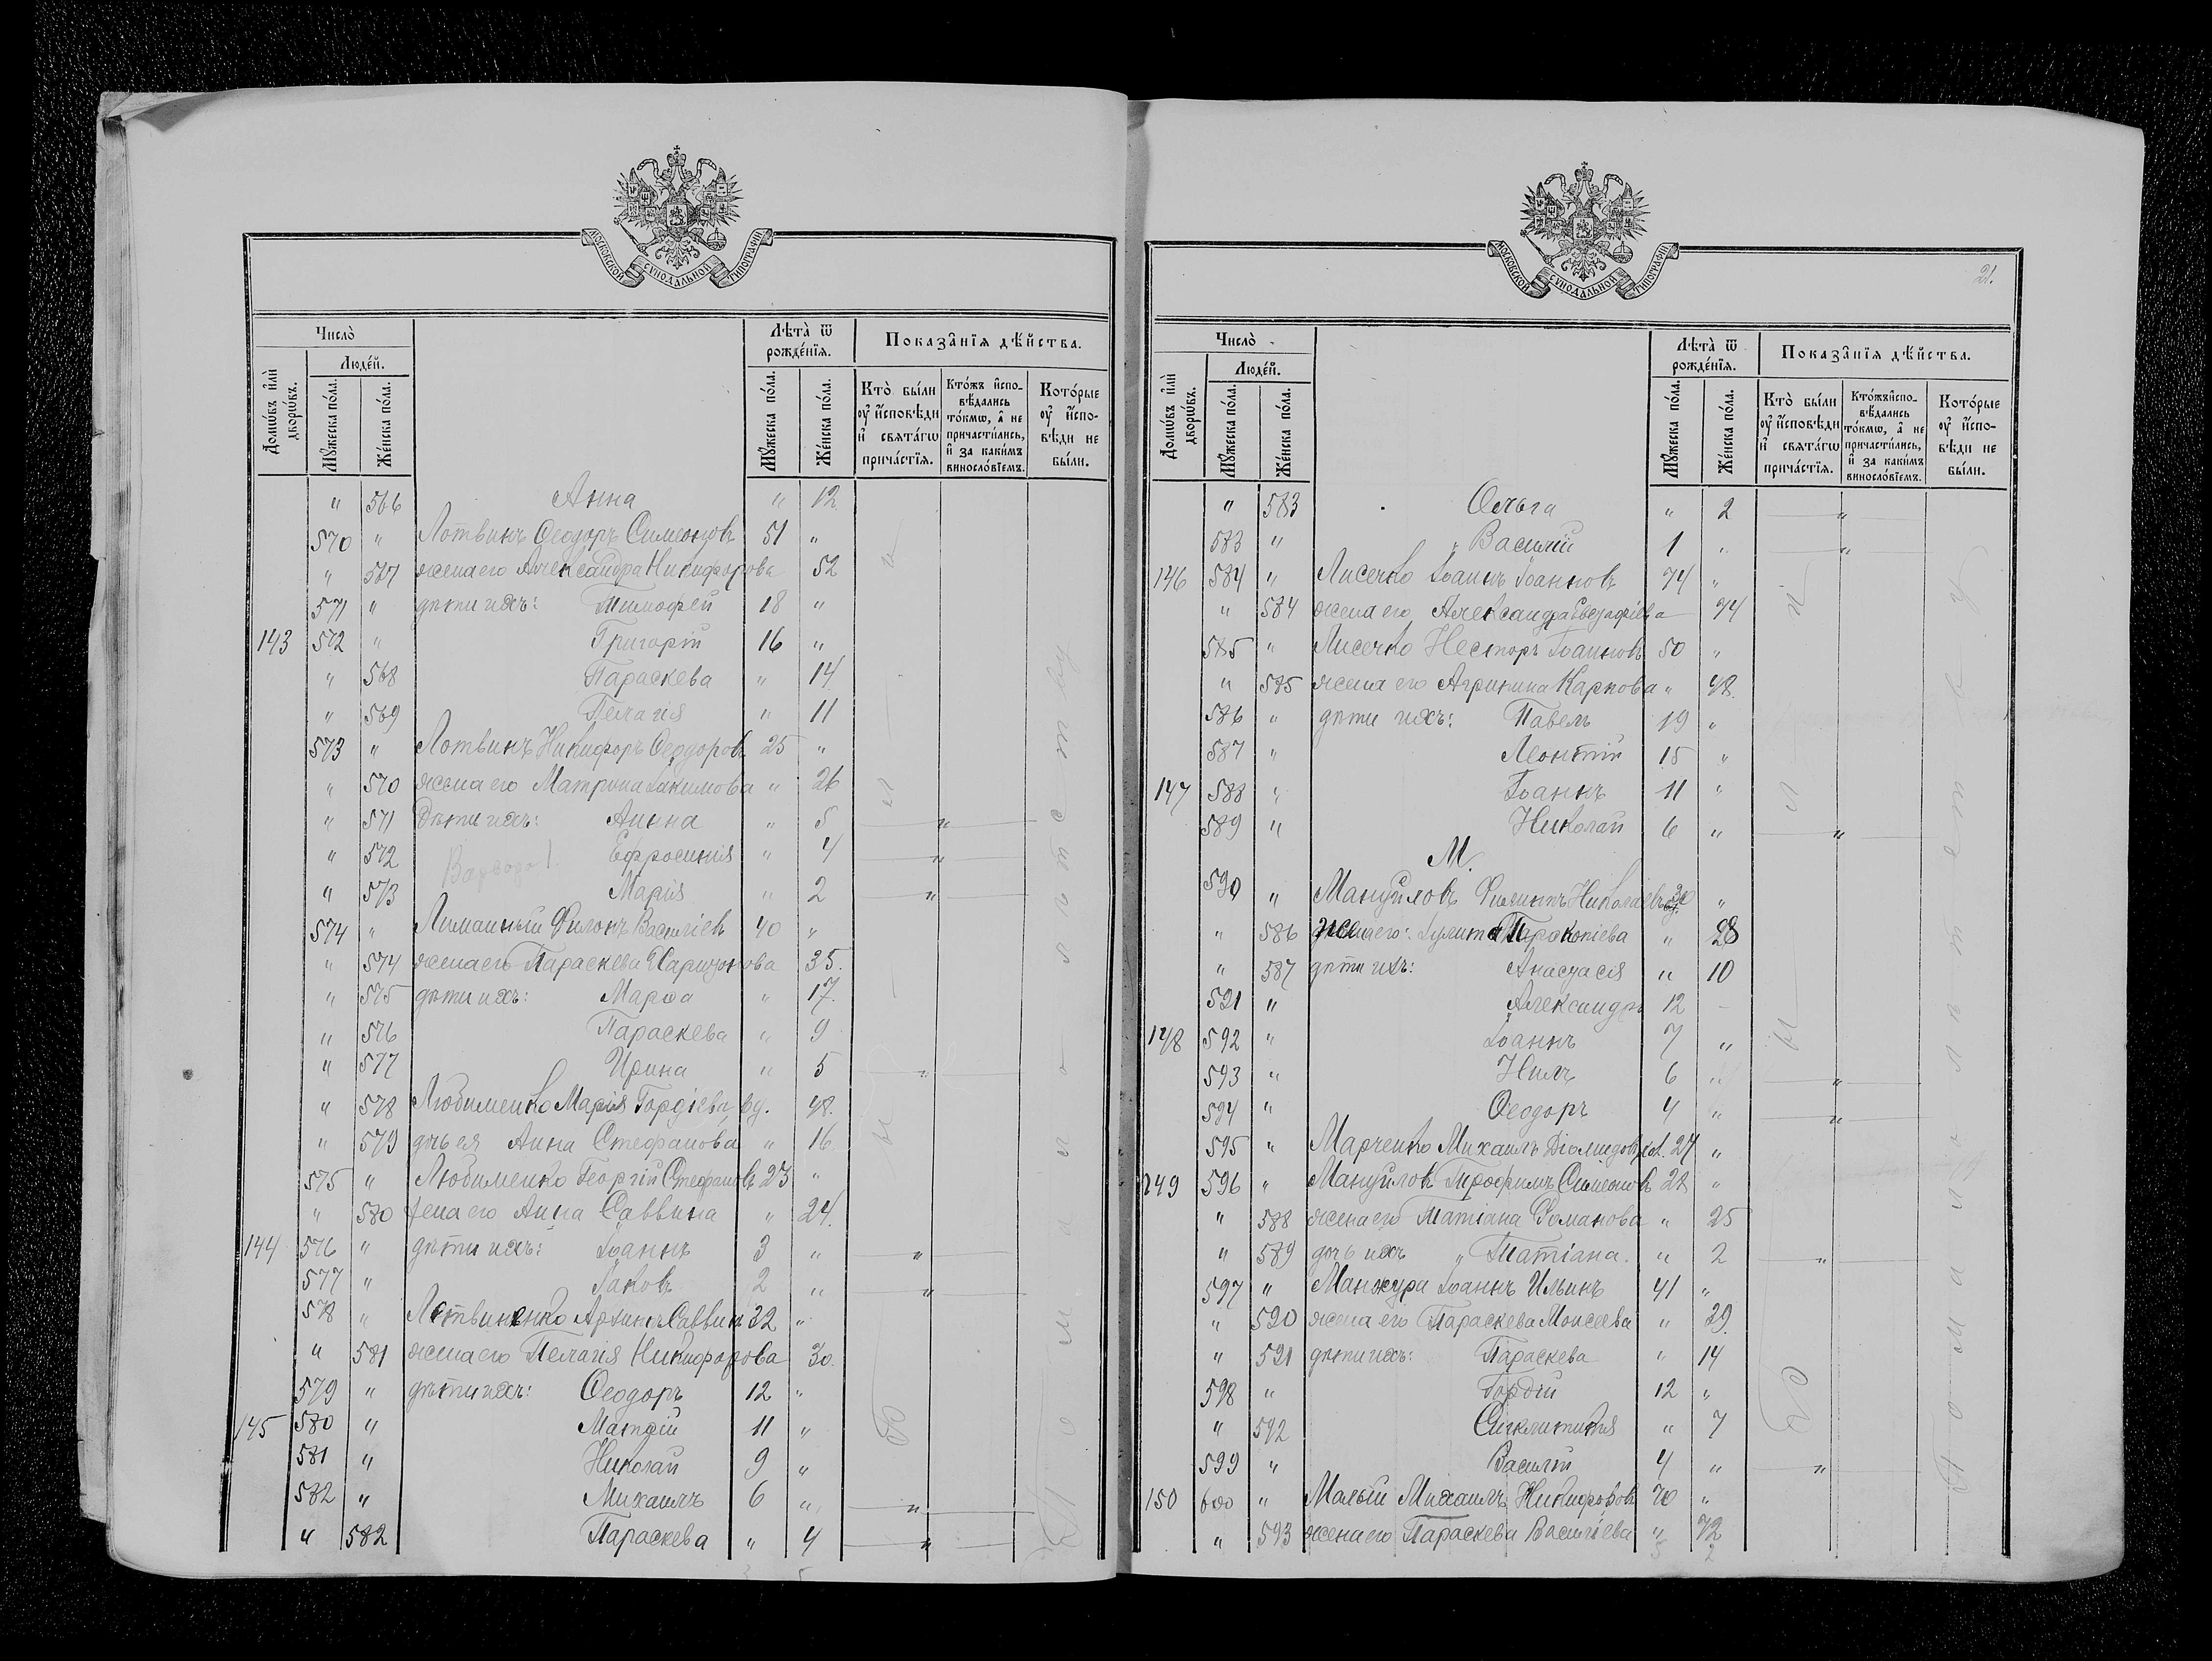 МОСКОВСКОЙ СѴНОДАЛЬНОЙ ТИПОГРАФІИ
Число̀
Домѡ́въ и҆лѝ дворѡ́въ.
Людѣ́й.
Мꙋ́жеска по́ла.
Же́нска по́ла.
Лѣта̀ ѿ рожде́нїѧ.
Мꙋ́жеска по́ла.
Же́нска по́ла.
Показа̑нїѧ дѣ́йства.
Кто̀ бы́ли ᲂу҆ и҆сповѣ́ди и҆ свѧта́гѡ прича́стїѧ.
Кто́жъ и҆спо- вѣ́дались то́кмѡ, а҆ не причасти́лись, и҆ за каки́мъ винословїемъ.
Кото́рые ᲂу҆ и҆спо- вѣ́ди не бы́ли.
" 566 Анна " 12
570 " Лотвинъ Ѳеодоръ Симеоновъ 51 "
" 567 жена его Александра Никифорова 52
571 " дѣти ихъ: Тимофей 18 "
143 572 " Григорій 16 "
" 568 Параскева " 14
" 569 Пелагія " 11
573 " Лотвинъ Никифоръ Ѳеодоровъ 25 "
" 570 жена его Матрона Іакимова " 26
" 571 Дѣти ихъ: Анна " 5 "
" 572 Варвара 1 Ефросинія " 4 "
" 573 Марія " 2 "
574 " Лиманный Филонъ Василіевъ 40 "
" 574 жена его Параскева Харитонова 35.
" 575 дѣти ихъ: Марѳа " 17.
" 576 Параскева " 9
" 577 Ирина " 5 "
" 578 Любименко Марія Гордіева, вд. 48.
" 579 дочь ея Анна Стефанова " 16
575 " Любименко Георгій Стефановъ 23 "
" 580 жена его Анна Саввина " 24.
144 576 " дѣти ихъ: Іоаннъ 3 " "
577 " Іаковъ 2 " "
578 " Лотвиненко Архипъ Саввинъ 32 "
" 581 жена его Пелагія Никифорова 30.
579 " дѣти ихъ: Ѳеодоръ 12 "
145 580 " Матѳій 11 "
581 " Николай 9 "
582 " Михаилъ 6 " "
" 582 Параскева " 4 "
МОСКОВСКОЙ СѴНОДАЛЬНОЙ ТИПОГРАФІИ
21.
Число̀
Домѡ́въ и҆лѝ дворѡ́въ.
Людѣ́й.
Мꙋ́жеска по́ла.
Же́нска по́ла.
Лѣта̀ ѿ рожде́нїѧ.
Мꙋ́жеска по́ла.
Же́нска по́ла.
Показа̑нїѧ дѣ́йства.
Кто̀ бы́ли ᲂу҆ и҆сповѣ́ди и҆ свѧта́гѡ прича́стїѧ.
Кто́жъ и҆спо- вѣ́дались то́кмѡ, а҆ не причасти́лись, и҆ за каки́мъ винословїемъ.
Кото́рые ᲂу҆ и҆спо- вѣ́ди не бы́ли.
" 583 Ольга " 2 "
583 " Василій 1 " "
146 584 " Лисечко Іоаннъ Іоанновъ 74 "
" 584 жена его Александра 74
585 " Лисечко Несторъ Іоанновъ 50 "
" 585 жена его Агрипина Карпова " 48.
586 " дѣти ихъ: Павелъ 19 "
587 " Леонтій 15 "
147 588 " Іоаннъ 11 "
589 " Николай 6 " "
М.
590 " Мануйловъ Филиппъ Николаевъ 30 "
" 586 жена его: Іулита Прокопіева " 28
" 587 дѣти ихъ: Анастасія " 10
591 " Александръ 12 -
148 592 " Іоаннъ 7 "
593 " Нилъ 6 " "
594 " Ѳеодоръ 4 " "
595 " Марченко Михаилъ Діомидовъ, хол. 27 "
149 596 " Мануйловъ Трофимъ Симеоновъ 28 "
" 588 жена его Татіана Романова " 25
" 589 дочь ихъ " Татіана. " 2 "
597 " Манжура Іоаннъ Ильинъ 41 "
" 590 жена его Параскева Моисеева " 39.
" 591 дѣти ихъ: Параскева " 14
598 " Гордій 12 "
" 592 Сигклитикія " 7
599 " Василій 4 " "
150 600 " Малый Михаилъ Никифоровъ 70 "
" 593 жена его Параскева Василіева " 72